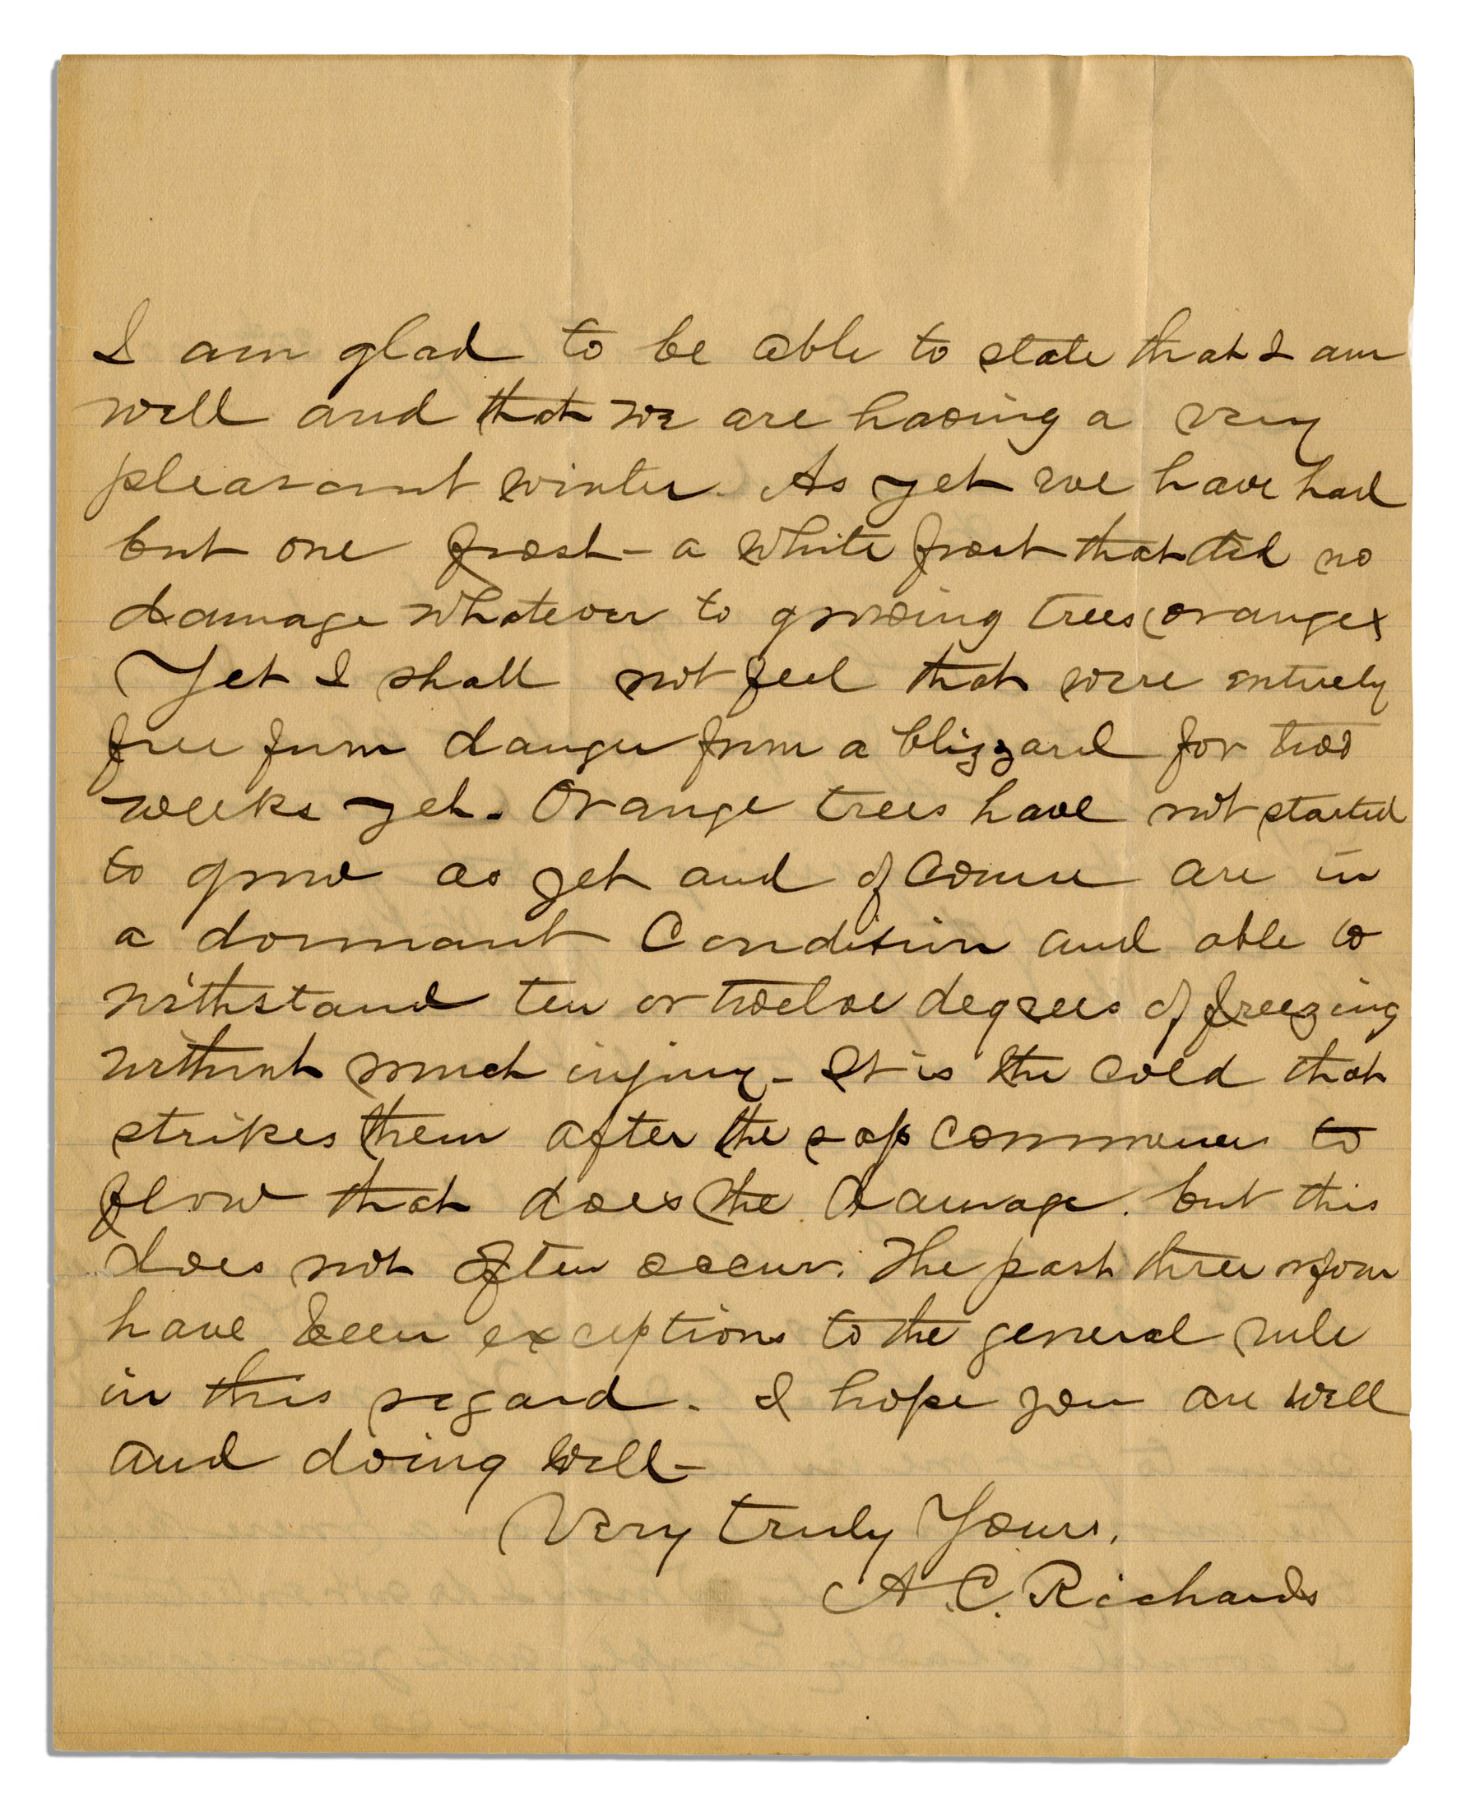 I am glad to be able to state that I am
well and that we are having a very
pleasant winter. As yet we have had
but one frost - a white frost that did no
damage whatever to growing trees (orange)
Yet I shall not feel that were entirely
free from danger from a blizzard for two
weeks yet. Orange trees have not started
to grow as yet and of course are in
a dormant condition and able to
withstand ten or twelve degrees of freezing
without much injury - It is the cold that
strikes them after the sap commences to
flow that does the damage. but this
does not often occur. The past three years
have been exceptions to the general rule
in this regard. I hope you are well
and doing well -
Very truly Yours,
A. C. Richards